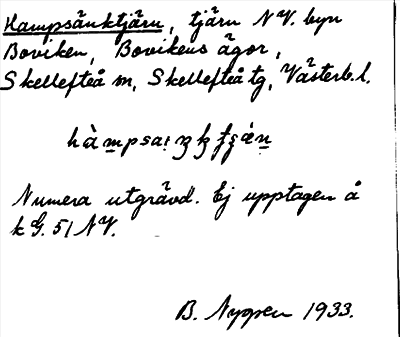 Hampsänktjärn, tjärn N.V. byn
Boviken, Bovikens ägor,
Skellefteå sn, Skellefteå tg, Västerb. l.
Numera utgrävd. Ej upptagen å
k G. 51 N.V.
B. Nygren 1933.